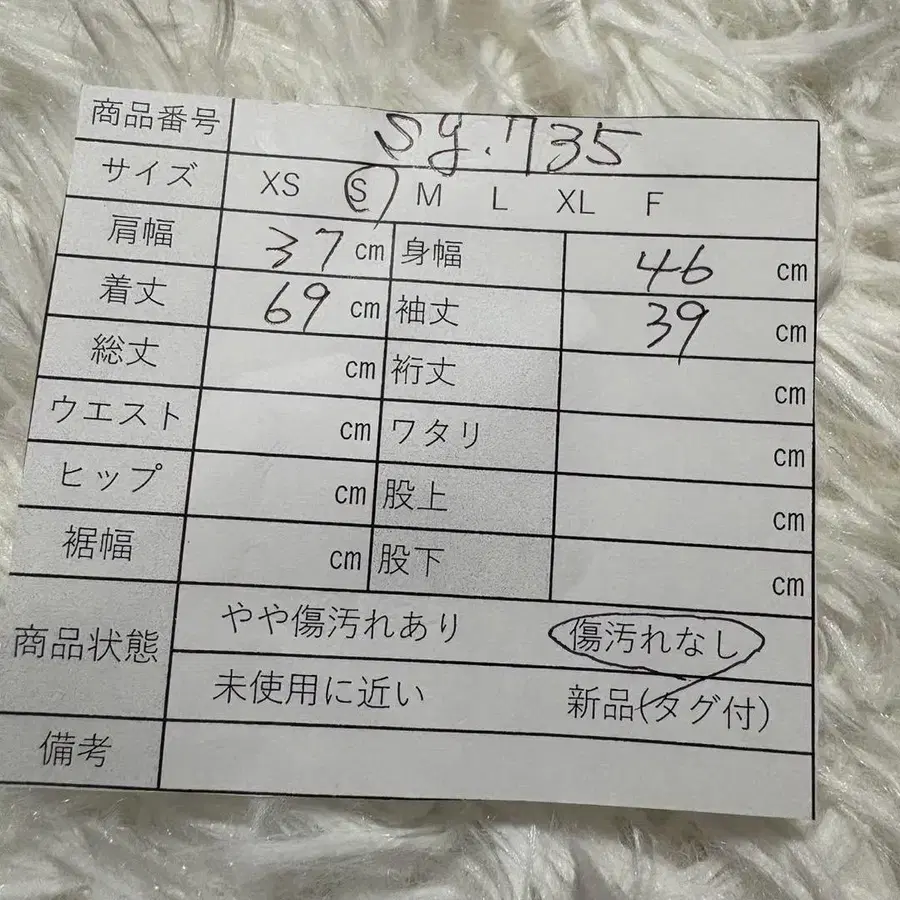 商品番号 sg.735
サイズ XS S M L XL F
肩幅 37 cm 身幅 46 cm
着丈 69 cm 袖丈 39 cm
総丈 cm 裄丈 cm
ウエスト cm ワタリ cm
ヒップ cm 股上 cm
裾幅 cm 股下 cm
商品状態 やや傷汚れあり 傷汚れなし
未使用に近い 新品(タグ付)
備考